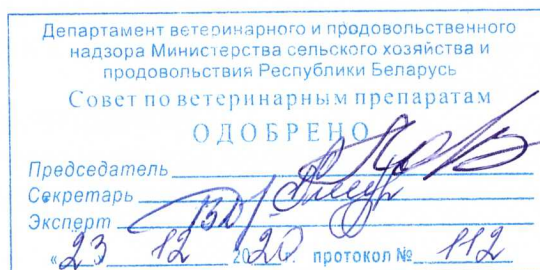 Департамент ветеринарного и продовольственного
надзора Министерства сельского хозяйства и
продовольствия Республики Беларусь
Совет по ветеринарным препаратам
ОДОБРЕНО
Председатель
Секретарь
Эксперт
«23 12 2020г. протокол № 112